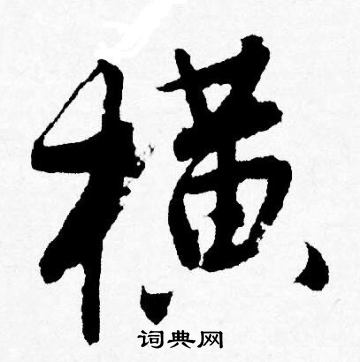 横
词典网